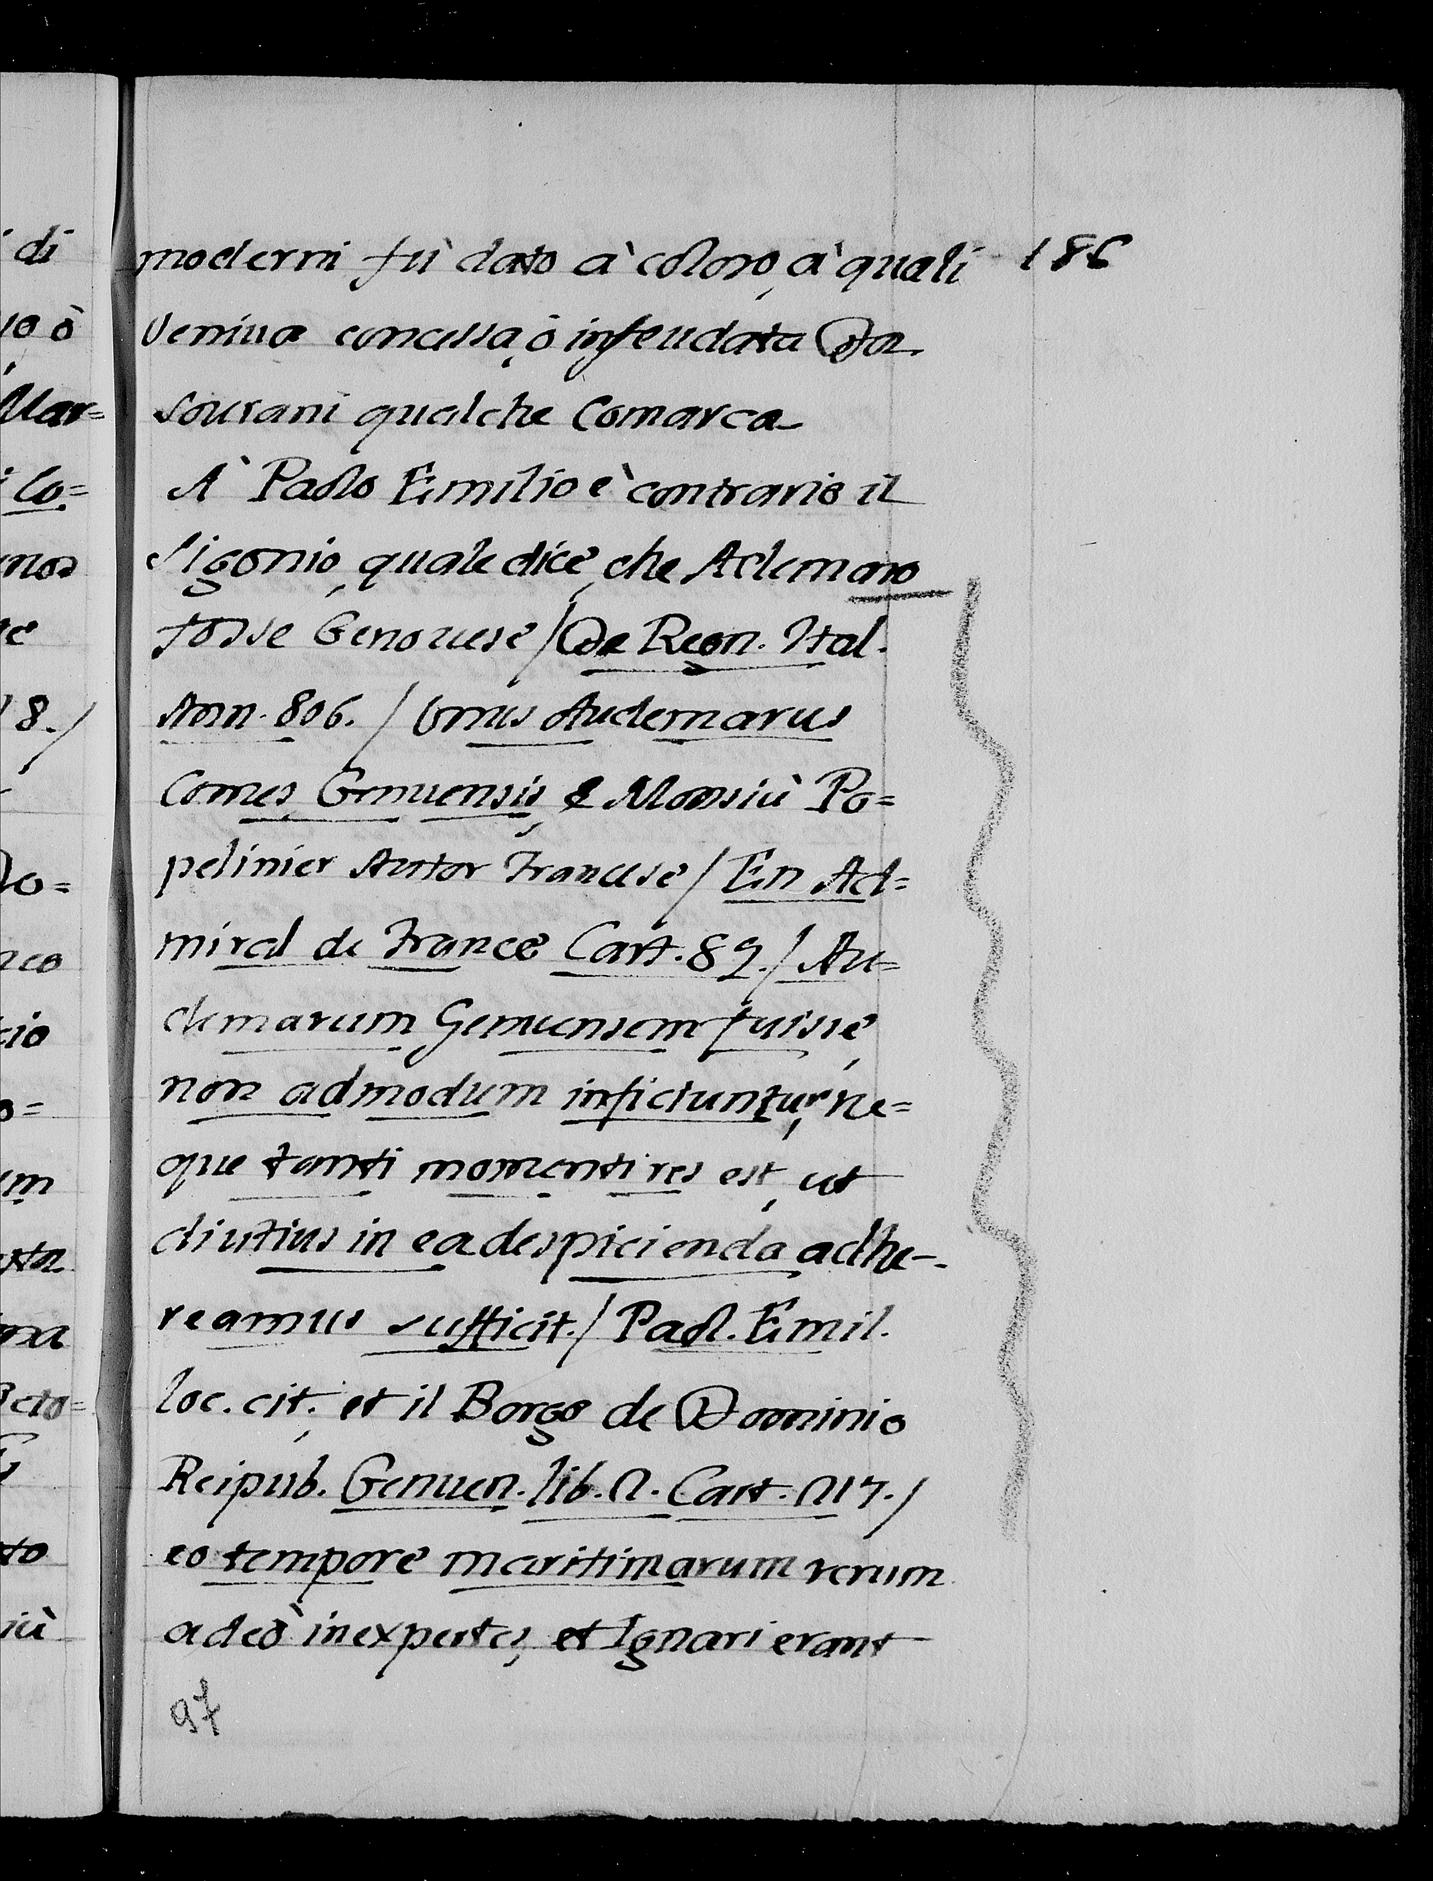 186
moderni fù dato à coloro, à quali
veniua concessa, ò infeudata da
sourani qualche Comarca
A' Paolo Emilio è contrario il
Sigonio, quale dice, che Ademaro
fosse Genouese / De Regn. Ital.
Ann. 806. / Unus Audemarus
Comes Genuensis, e Monsiù Po=
pelinier Autor Francese / En Ad=
miral de France Cart. 89. / Au=
demarum Genuensem fuisse,
non admodum inficiuntur, ne=
que tanti momenti res est, ut
diutius in ea despicienda adhe-
reamus sufficit. / Paol. Emil.
loc. cit., et il Borgo de Dominio
Reipub. Genuen. lib. 2. Cart. 217. /
eo tempore maritimarum rerum
adeò inexpertes, et Ignari erant
97
di
ò
Mar=
Co=
te
18. /
o=
io
o=
um
to
iù